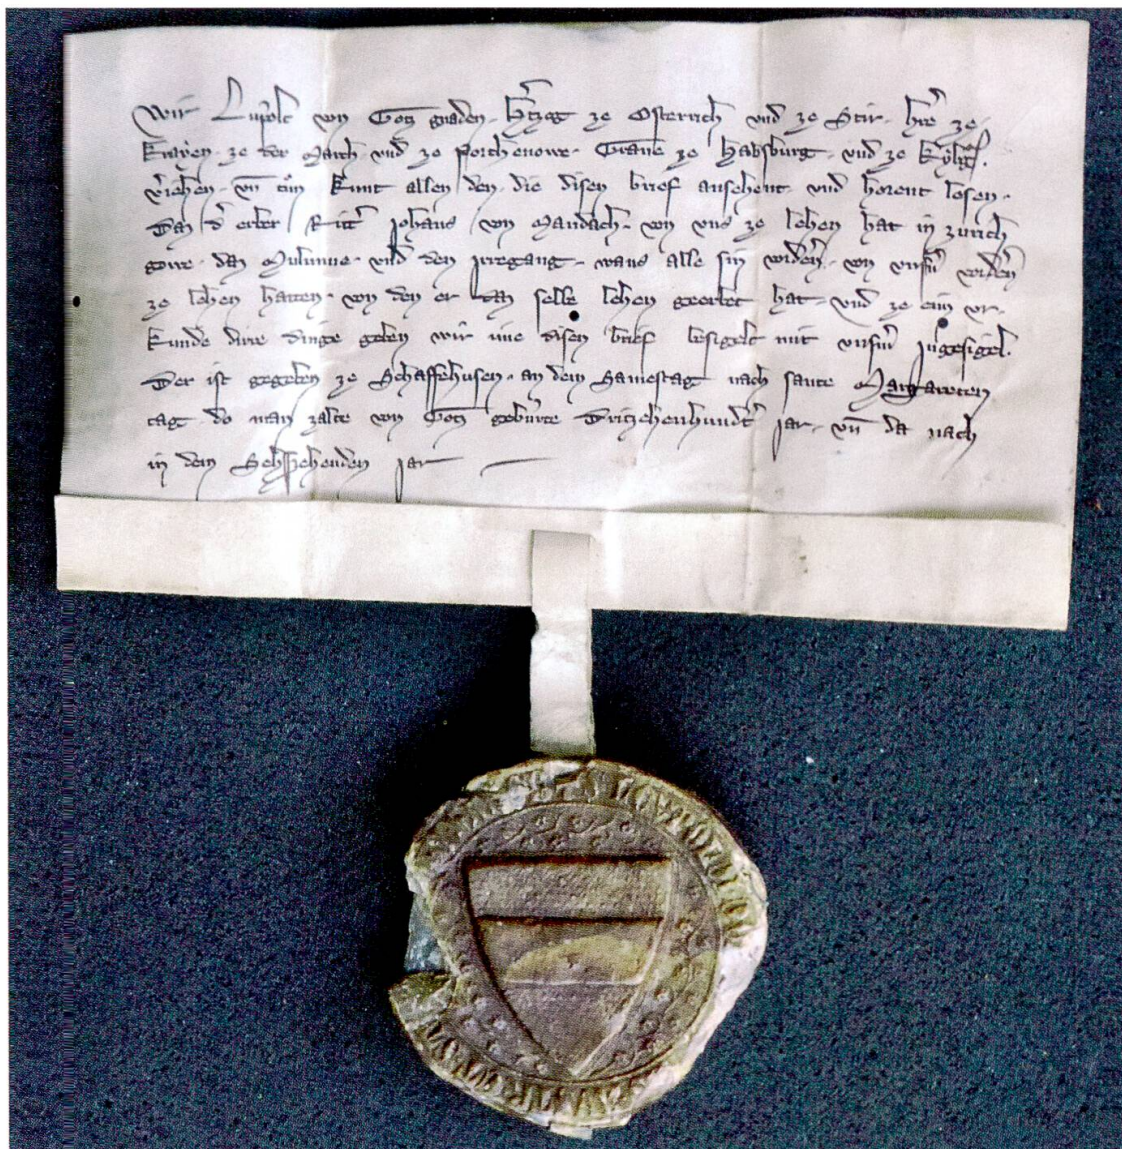 Wir Lu̍polt von Gotz gnaden · Hꝰtzog ze Osterrich vnd ze Stir · hr̄e ze ·
Krayen · ze der March · vnd ze Portenowe · Graue ze Habsburg · vnd ze Kyburg ·
vꝰiehen · vn̄ tůn kunt allen den · die disen brief ansehent vnd hörent lesen ·
Daz dꝰ erber Rittꝰ Johans von Mandach · von vns ze lehen hat in zurich
gowe · daz Mulinne · vnd den Irregang · wans alle sin vordꝰn · von vnsꝰn vordꝰn
ze lehen hatten · von den er daz selbe lehen geerbet hat · vnd ze eim vr-
kunde dirre dinge geben wir ime disen brief besigelt mit vnsꝰm Ingesigel ·
Der ist gegeben ze Schaffehusen · an dem Samestag nach sante Margareten
tag · do man zalte von Gotz gebu̍rte Dritzehenhundꝰt jar · vn̄ da nach
in dem Sehszehenden jar